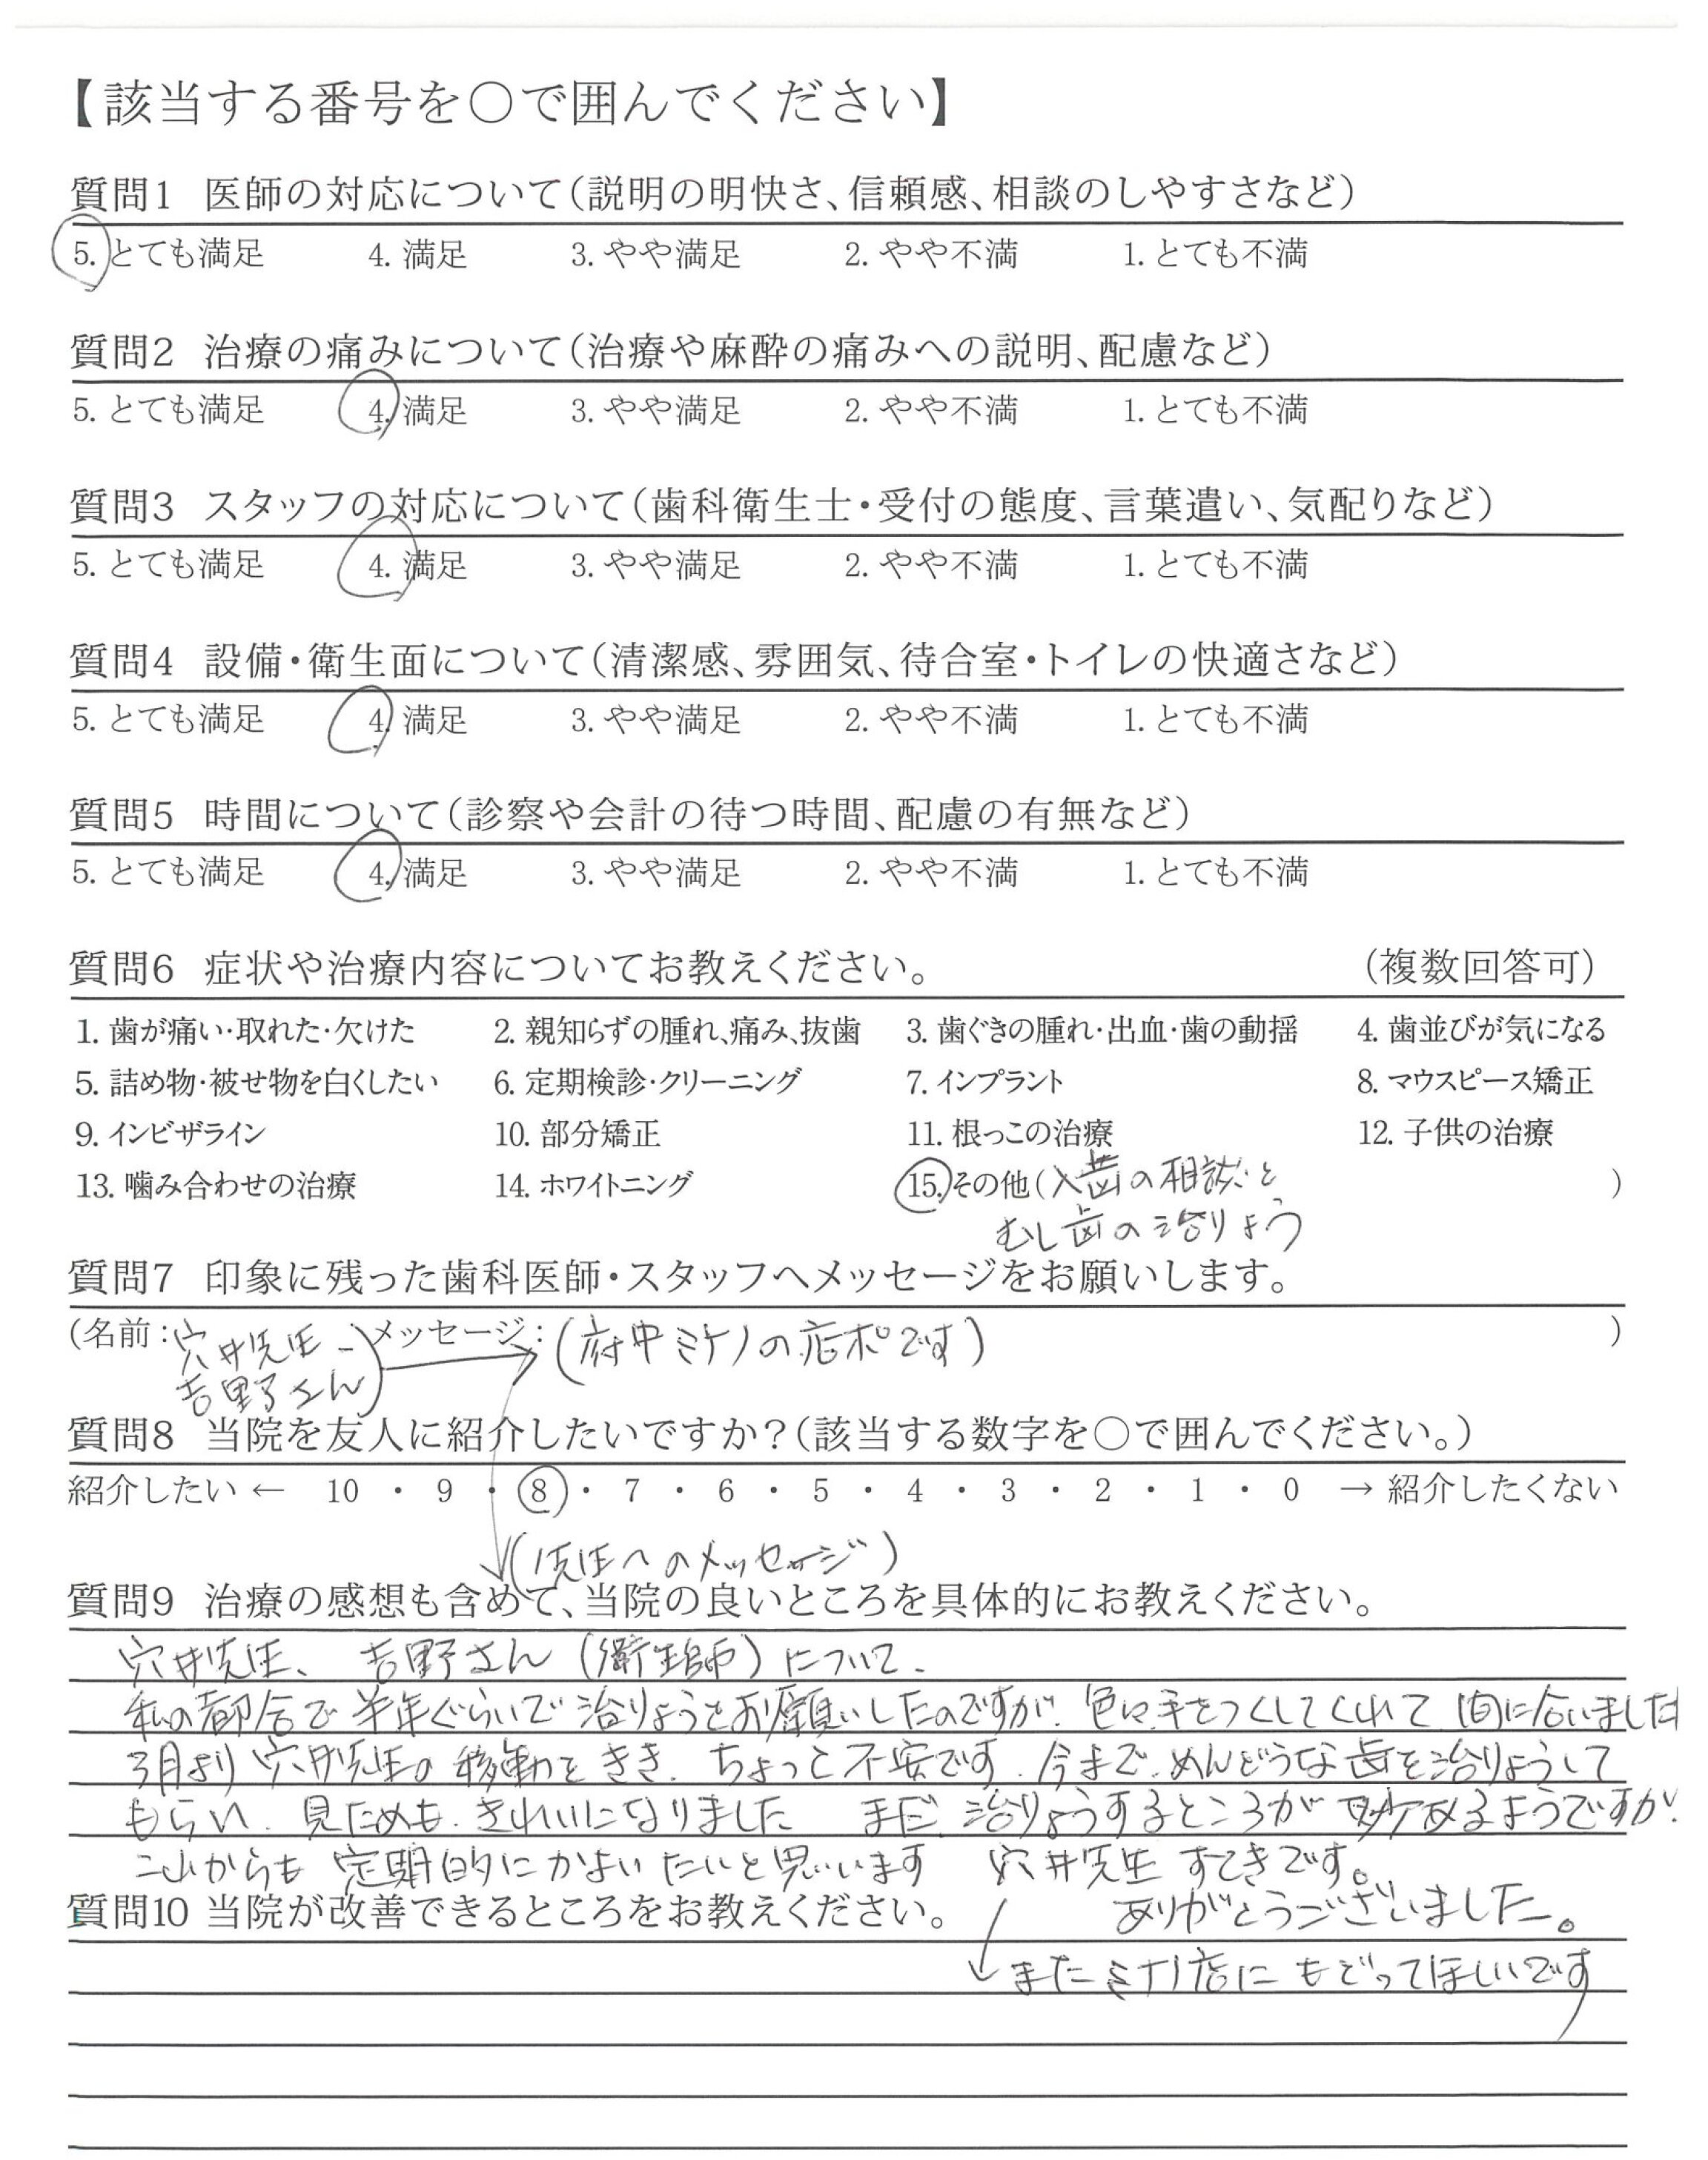 【該当する番号を○で囲んでください】
質問1 医師の対応について(説明の明快さ、信頼感、相談のしやすさなど)
5. とても満足 4. 満足 3. やや満足 2. やや不満 1. とても不満
質問2 治療の痛みについて(治療や麻酔の痛みへの説明、配慮など)
5. とても満足 4. 満足 3. やや満足 2. やや不満 1. とても不満
質問3 スタッフの対応について(歯科衛生士・受付の態度、言葉遣い、気配りなど)
5. とても満足 4. 満足 3. やや満足 2. やや不満 1. とても不満
質問4 設備・衛生面について(清潔感、雰囲気、待合室・トイレの快適さなど)
5. とても満足 4. 満足 3. やや満足 2. やや不満 1. とても不満
質問5 時間について(診察や会計の待つ時間、配慮の有無など)
5. とても満足 4. 満足 3. やや満足 2. やや不満 1. とても不満
質問6 症状や治療内容についてお教えください。 (複数回答可)
1. 歯が痛い・取れた・欠けた 2. 親知らずの腫れ、痛み、抜歯 3. 歯ぐきの腫れ・出血・歯の動揺 4. 歯並びが気になる
5. 詰め物・被せ物を白くしたい 6. 定期検診・クリーニング 7. インプラント 8. マウスピース矯正
9. インビザライン 10. 部分矯正 11. 根っこの治療 12. 子供の治療
13. 噛み合わせの治療 14. ホワイトニング 15. その他(入歯の相談と )
むし歯の治りょう
質問7 印象に残った歯科医師・スタッフへメッセージをお願いします。
(名前:穴井先生 メッセージ:(府中ミナノの店ポです) )
吉野さん
質問8 当院を友人に紹介したいですか?(該当する数字を○で囲んでください。)
紹介したい ← 10 ・ 9 ・ 8 ・ 7 ・ 6 ・ 5 ・ 4 ・ 3 ・ 2 ・ 1 ・ 0 → 紹介したくない
(先生へのメッセージ)
質問9 治療の感想も含めて、当院の良いところを具体的にお教えください。
穴井先生、吉野さん(衛生師)について、
私の都合で半年ぐらいで治りょうとお願いしたのですが、色々手をつくしてくれて 間に合いました
3月より穴井先生の移動をきき、ちょっと不安です。今まで、めんどうな歯を治りょうして
もらい、見ためも、きれいになりました まだ 治りょうするところが あるようですが、
これからも 定期的にかよいたいと思います 穴井先生 すてきです。
ありがとうございました。
質問10 当院が改善できるところをお教えください。
またミナノ店に もどってほしいです